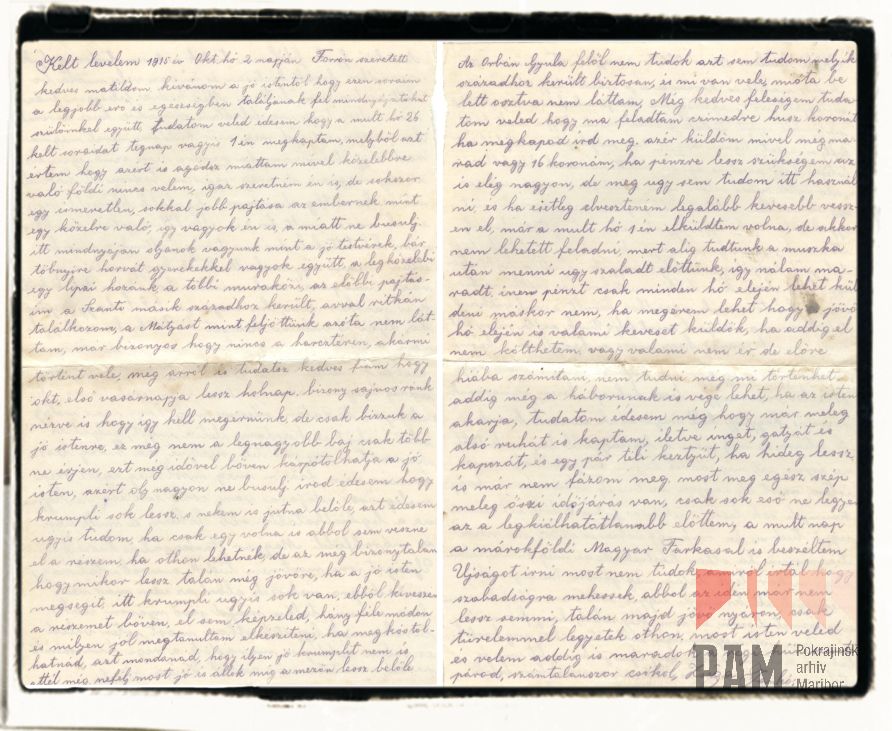 Kelt levelem 1915 év Okt. hó 2 napján Forrón szeretett
kedves matildom kivánom a jó istentöl hogy ezen soraim
a legjobb erö és egeségben találjanak fel mindnyájatokat
szülöinkel együtt, tudatom veled idesem hogy a mult hó 26
kelt soraidat tegnap vagyis 1 én megkaptam, melyböl azt
értem hogy azért is agódsz miattam mivel közelebbre
való földi nincs velem, igaz szeretném én is, de sokszor
egy ismeretlen, sokkal jobb pajtása az embernek mint
egy közelre való, igy vagyok én is, a miatt ne busulj.
itt mindnyájan olyanok vagyunk mint a jó testvérek, bár
többnyire horvát gyerekekkel vagyok együtt, a legközelebi
egy lipai hozánk a többi muraközi, az elöbbi pajtás-
im a Szanti másik századhoz került, avval ritkán
találkozom, a Mátyást mint feljöttünk azóta nem lát-
tam, mar bizonyos hogy nincs a harcztéren, akármi
történt vele, meg arról is tudatsz kedves fiam hogy
okt, elsö vasarnapja lessz holnap, bizony sajnos ránk
nérve is hogy igy kell megérnünk, de csak bizzuk a
jó istenre, ez még nem a legnagyobb baj csak több
ne érjen, ezt meg idövel böven kárpótolhatja a jó
isten, azért olj nagyon ne busulj irod edesem hogy
krumpli sok lessz, s nekem is jutna belöle, azt édesem
ugyis tudom, ha csak egy volna is abbol sem veszne
el a részem, ha othon lehetnék, de az még bizonytalan
hogy mikor lessz talán még jövöre, ha a jó isten
megsegit, itt krumpli ugyis sok van, ebböl kiveszem
a részemet böven, el sem képzeled, hány féle módon
és milyen jól megtanultam elkésziteni, ha megkóstol-
hatnád, azt mondanád, hogy ilyen jó krumplit nem is
ettél még, nefélj most jó is állok mig a mezön lessz belöle,
Az Orbán Gyula felöl nem tudok azt sem tudom melyik
századhoz került biztosan, és mi van vele, mióta be
lett osztva nem láttam, Még kedves feleségem tuda-
tom veled hogy ma feladtam czimedre husz koronát
ha megkapod ird meg. azér küldöm mivel még ma-
rad vagy 16 koronám, ha pénzre lessz szükségem az
is elég nagyon, de meg ugy sem tudom itt használ
ni, és ha esetleg elveszteném legalább kevesebb vessz-
en el, már a mult hó 1 én elküldtem volna, de akkor
nem lehetett feladni, mert alig tudtunk a muszka
után menni ugy szaladt elöttünk, igy nálam ma-
radt, inen pénzt csak minden hó elején lehet kül
deni máskor nem, ha megérem lehet hogy a jövö
hó elején is valami keveset küldök, ha addig el
nem költhetem, vagy valami nem ér de elöre
hiába számitani, nem tudni még mi történhet,
addig még a háborunak is vége lehet, ha az isten
akarja, tudatom idesem még hogy már meleg
alsó ruhát is kaptam, illetve inget, gatyát és
kapczát, és egy pár teli keztyüt, ha hideg lessz,
is már nem fázom meg, most meg egesz szép
meleg öszi idöjárás van, csak sok esö ne legyen
az a legkiálhatatlanabb elöttem, a mult nap
a márokföldi Magyar Farkasal is beszéltem
Ujságot irni most nem tudok, amirol irtál hogy
szabadságra mehessek, abbol az idén már nem
lessz semmi, talán majd jövö nyáron, csak
türelemmel legyetek othon, most isten veled
és velem addig is maradok
párod, számtalanszor csókol,
PAM
Pokrajinski
arhiv
Maribor